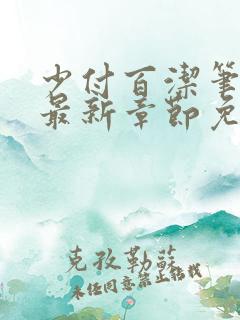 少付百潔筆
最新章節免
克孜勒蘇
未任同意禁止轉載